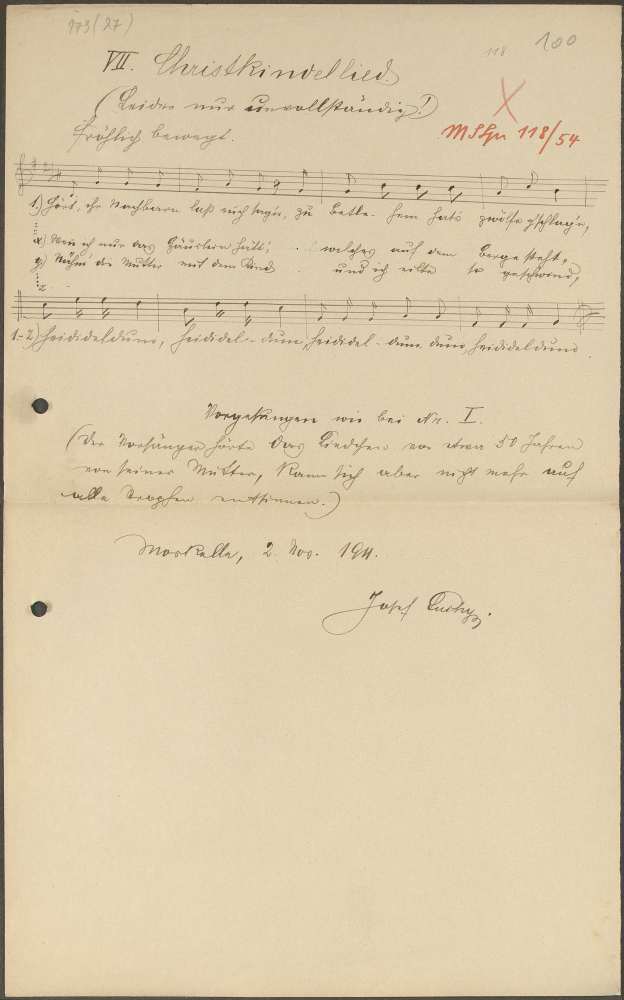 173(27)
118 100
VII. Christkindellied.
(Leider nur unvollständig!)
Fröhlich bewegt.
MShn 118/54
1.) Hört, ihr Nachbarn laßt euch sag'n, zu Betle- hem hats zwölfe g'schlag'n,
x) Wenn ich nur das Häuslein hätt', welches auf dem Berge steht,
y) Nähm' die Mutter mit dem Kind und ich eilte so geschwind,
1.-2.) Heidideldum, heididel-dum, heididel-dum dum, heidideldum.
Vorgesungen wie bei Nr. I.
(Der Vorsänger hörte das Liedchen vor etwa 50 Jahren
von seiner Mutter, kann sich aber nicht mehr auf
alle Strophen entsinnen.)
2. Nov. 1911.
Josef